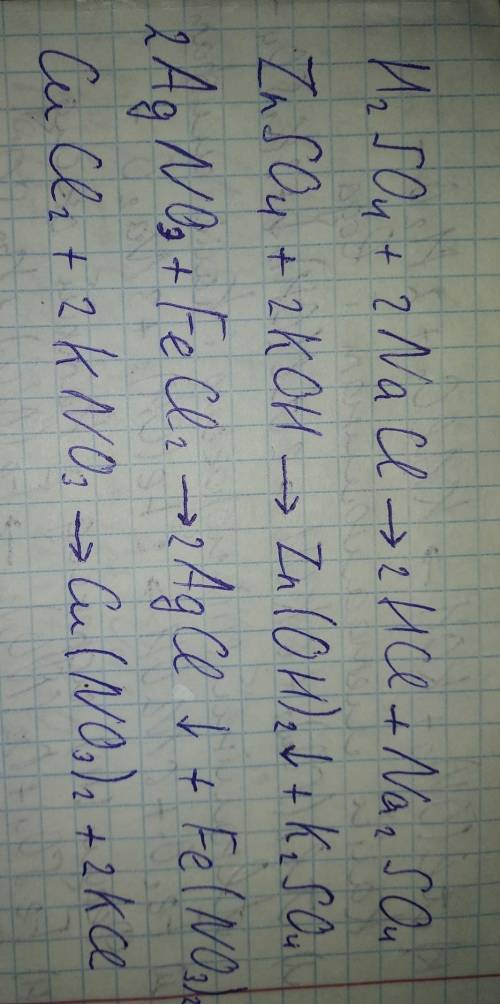 H₂SO₄ + 2NaCl → 2HCl + Na₂SO₄
ZnSO₄ + 2KOH → Zn(OH)₂↓ + K₂SO₄
2AgNO₃ + FeCl₂ → 2AgCl↓ + Fe(NO₃)₂
CuCl₂ + 2KNO₃ → Cu(NO₃)₂ + 2KCl